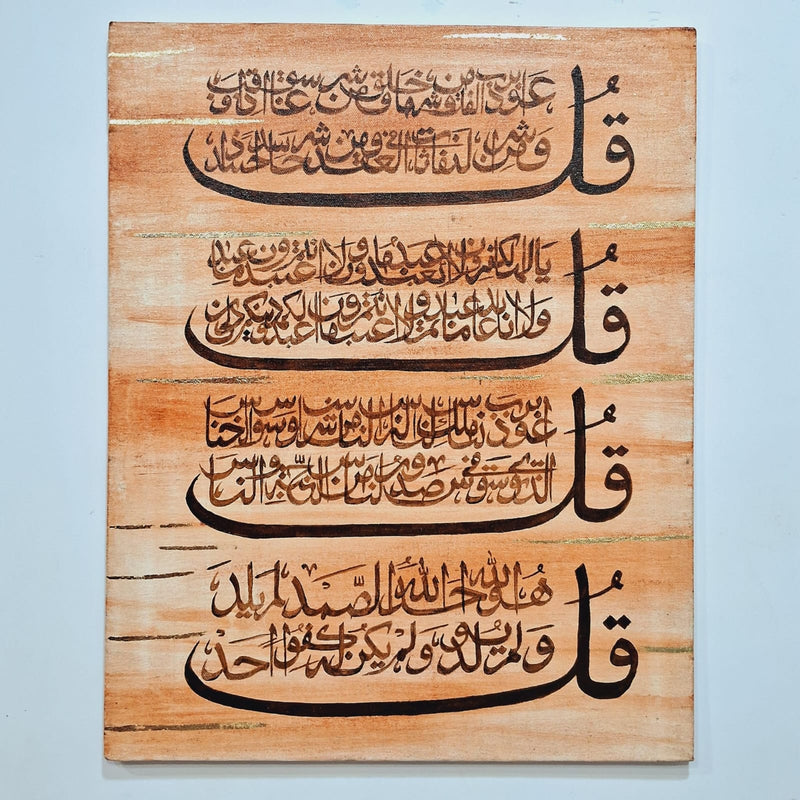 قُل اعوذ برب الفلق من شر ما خلق ومن شر غاسق اذا وقب
ومن شر النفاثات في العقد ومن شر حاسد اذا حسد
قُل يا ايها الكفرون لا اعبد ما تعبدون ولا انتم عبدون ما اعبد
ولا انا عابد ما عبدتم ولا انتم عبدون ما اعبد لكم دينكم ولي دين
قُل اعوذ برب الناس ملك الناس اله الناس من شر الوسواس الخناس
الذي يوسوس في صدور الناس من الجنة والناس
قُل هُو الله احد الله الصَّمد لم يلد
ولم يولد ولم يكن له كفوا احد